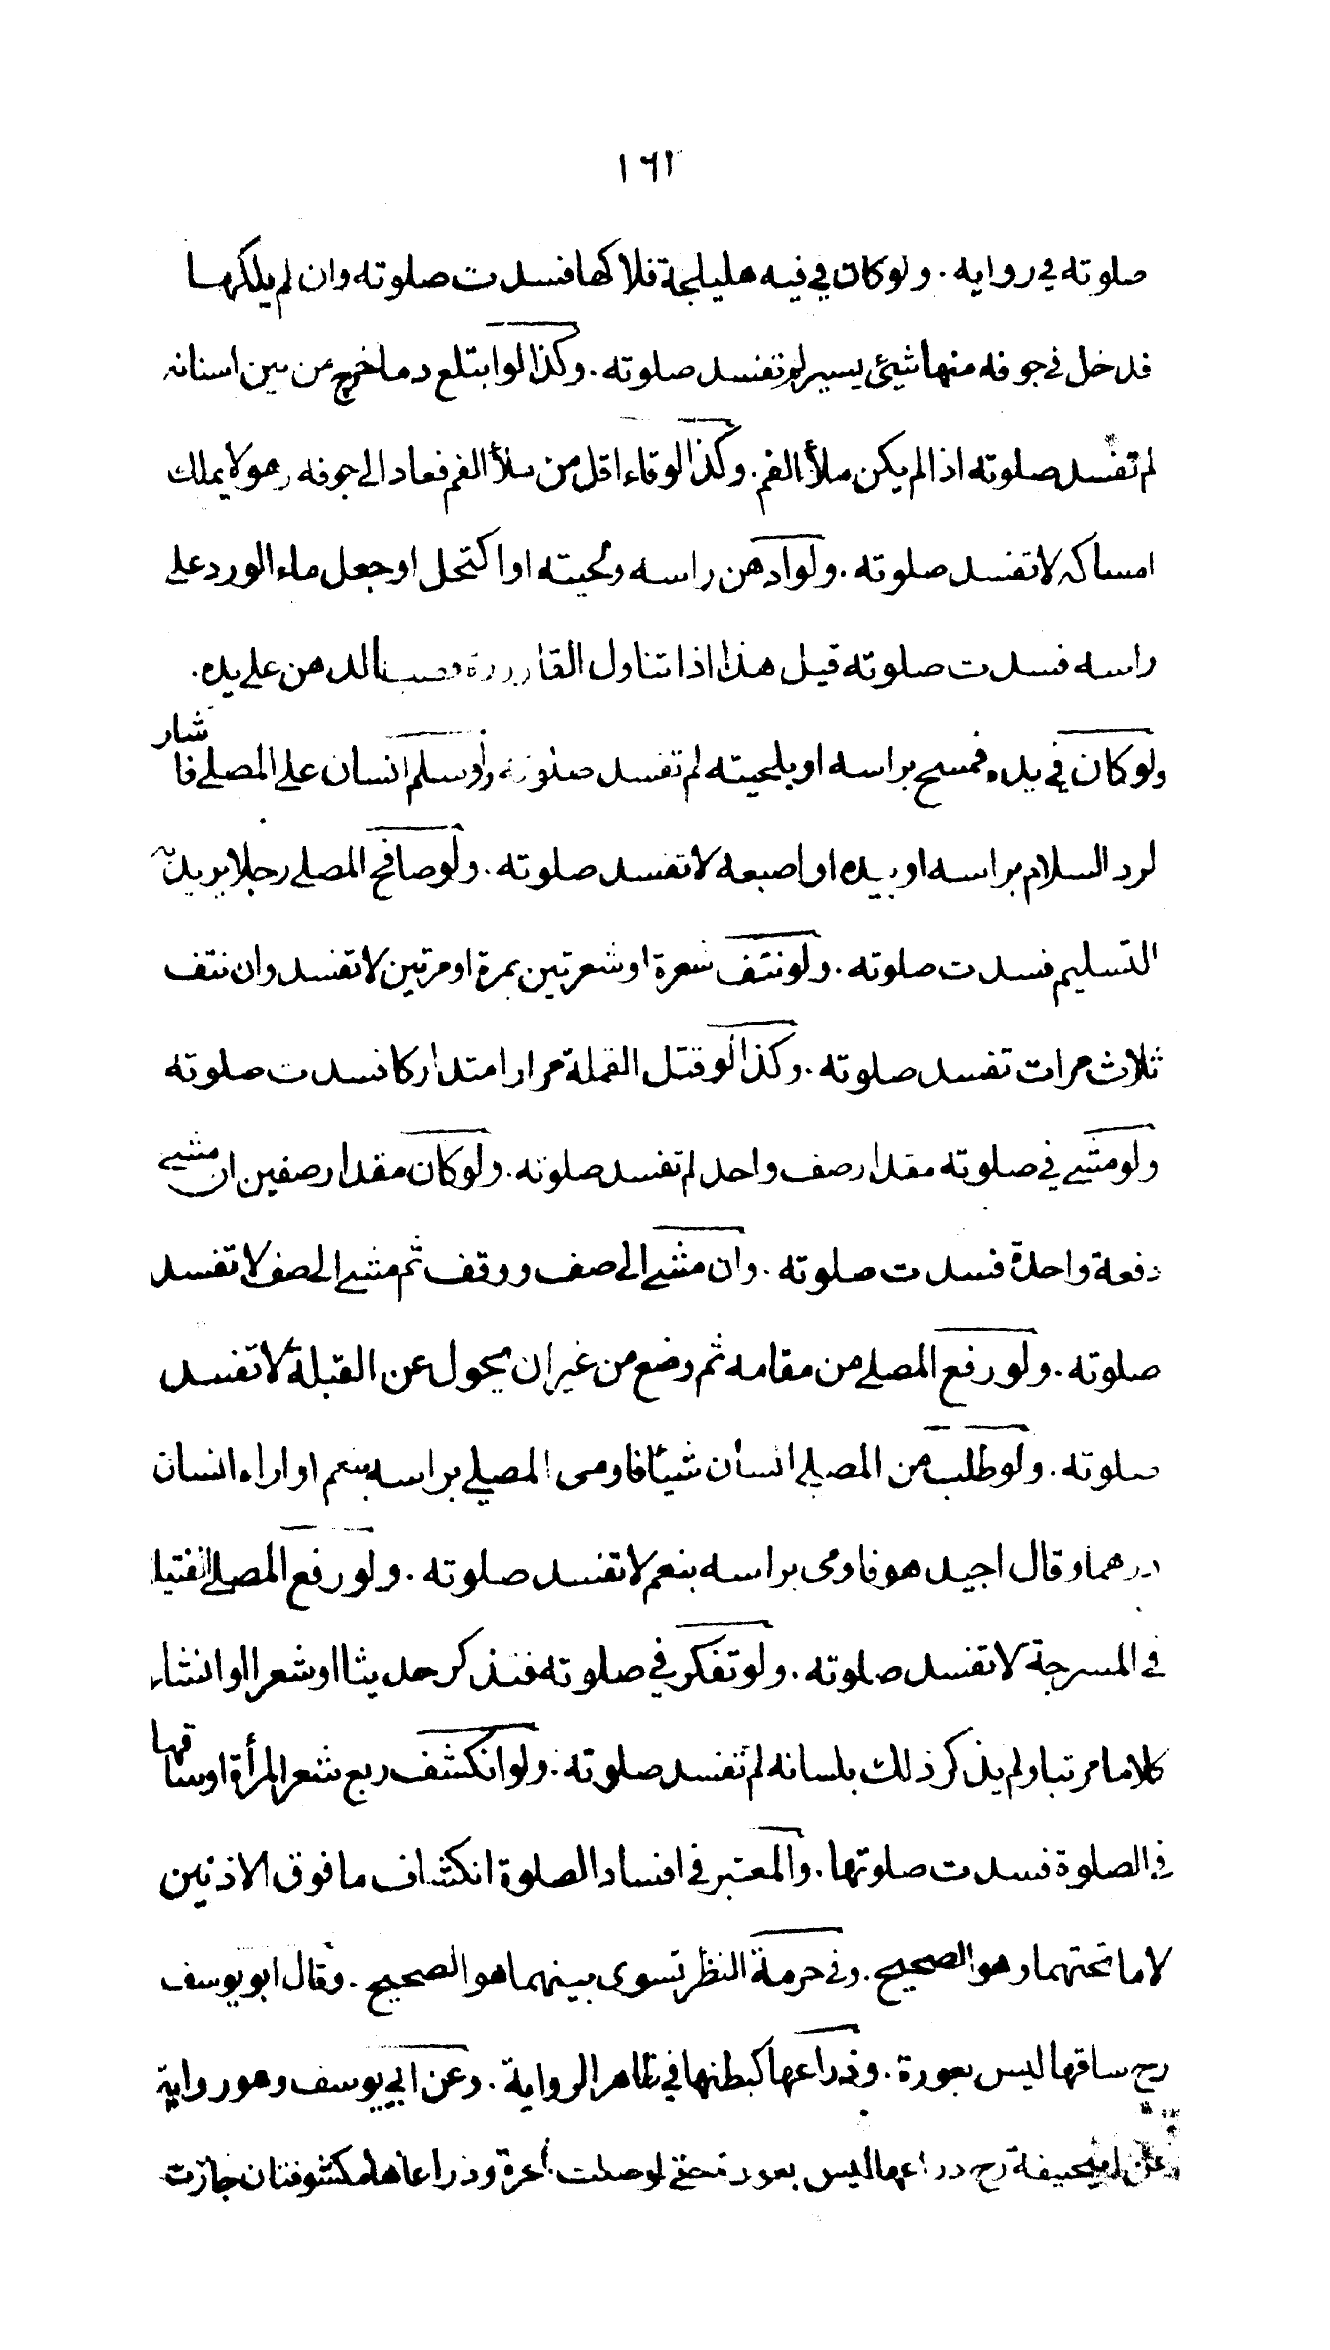 ١٦٢
صلوته في رواية. ولو كان في فيه هليلجة فلاكها فسدت صلوته وان لم يلكها
فدخل في جوفه منها شيئ يسير لم تفسد صلوته. وكذا لو ابتلع دما خرج من بين اسنانه
لم تفسد صلوته اذا لم يكن ملأ الفم. وكذا لو قاء اقل من ملأ الفم فعاد الى جوفه وهو لا يملك
امساكه لا تفسد صلوته. ولو ادهن راسه ولحيته او اكتحل او جعل ماء الورد على
راسه فسدت صلوته قيل هذا اذا تناول القارورة فصب الدهن على يده.
ولو كان في يده فمسح براسه او بلحيته لم تفسد صلوته ولو سلم انسان على المصلي فاشار
لرد السلام براسه او بيده او اصبعه لا تفسد صلوته. ولو صافح المصلي رجلا يريد به
التسليم فسدت صلوته. ولو نتف شعرة او شعرتين بمرة او مرتين لا تفسد وان نتف
ثلاث مرات تفسد صلوته. وكذا لو قتل القملة مرارا متداركا فسدت صلوته
ولو مشى في صلوته مقدار صف واحد لم تفسد صلوته. ولو كان مقدار صفين ان مشى
دفعة واحدة فسدت صلوته. وان مشى الى صف ووقف ثم مشى الى صف لا تفسد
صلوته. ولو رفع المصلي من مقامه ثم وضع من غير ان يحول عن القبلة لا تفسد
صلوته. ولو طلب من المصلي انسان شيئا فاومى المصلي براسه بنعم او اراه انسان
درهما وقال اجيد هو فاومى براسه بنعم لا تفسد صلوته. ولو رفع المصلي الفتيلة
في المسرجة لا تفسد صلوته. ولو تفكر في صلوته فتذكر حديثا او شعرا او انشاء
كلاما مرتبا ولم يذكر ذلك بلسانه لم تفسد صلوته. ولو انكشف ربع شعر المرأة او ساقها
في الصلوة فسدت صلوتها. والمعتبر في افساد الصلوة انكشاف ما فوق الاذنين
لا ما تحتهما وهو الصحيح. وفي حرمة النظر تسوى بينهما هو الصحيح. وقال ابو يوسف
رح ساقها ليس بعورة. وذراعها كبطنها في ظاهر الرواية. وعن ابي يوسف وهو رواية
عن ابي حنيفة رح ذراعها ليس بعورة حتى لو صلت حرة وذراعاها مكشوفتان جازت